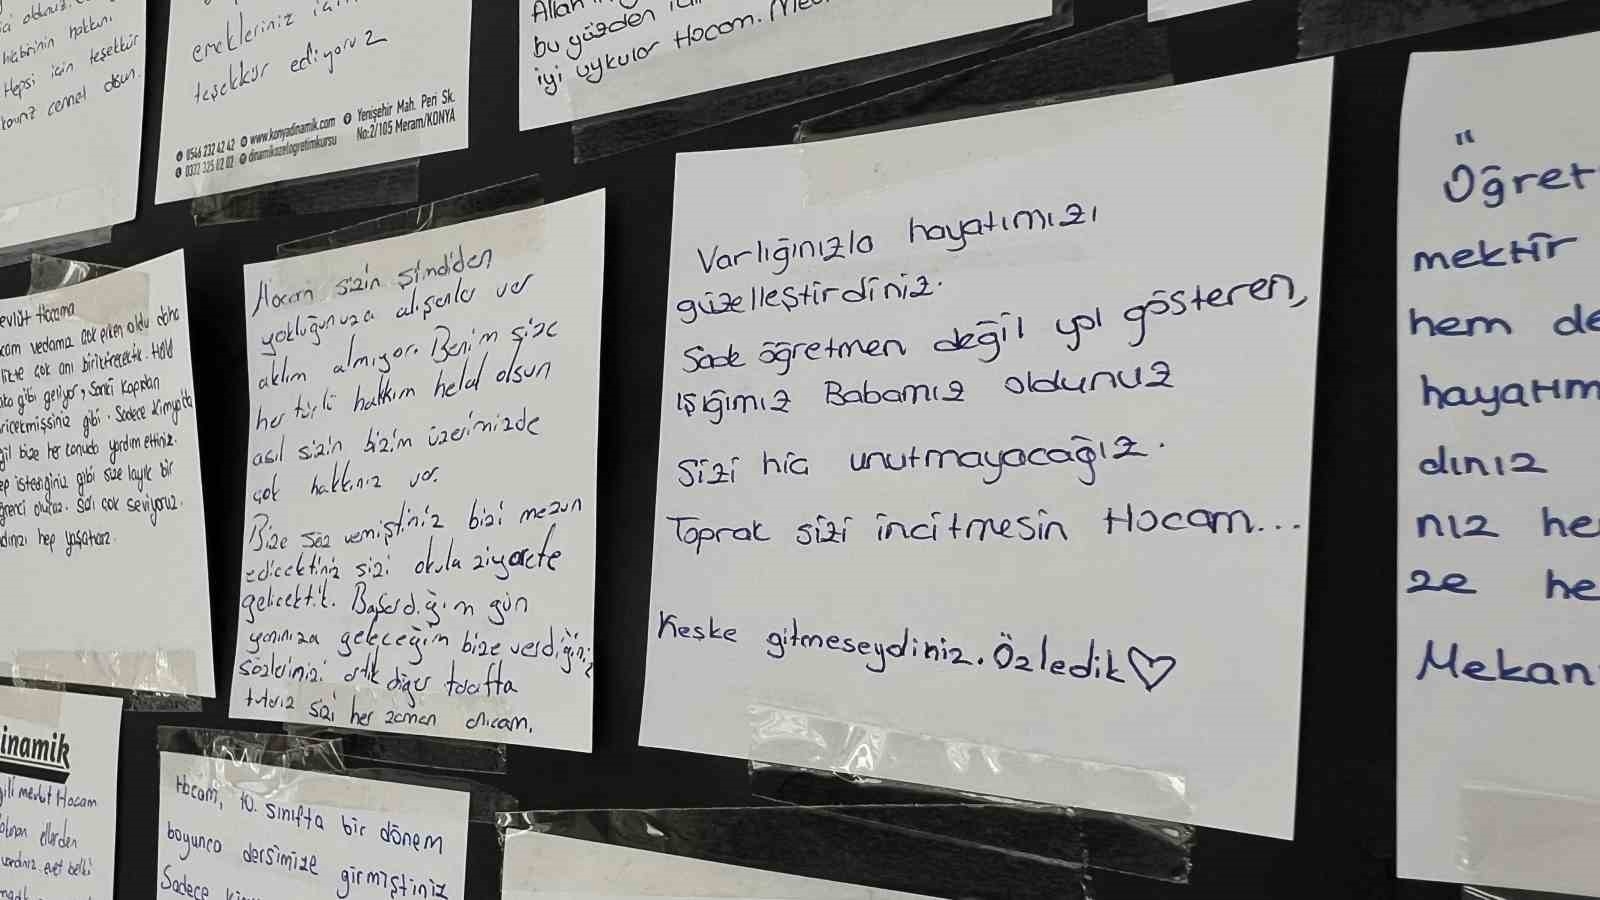 hakkını
Hepsi için teşekkür
cennet olsun.
emekleriniz için
teşekkür ediyoruz
0546 232 42 42 www.konyadinamik.com Yenişehir Mah. Peri Sk.
0332 325 02 02 dinamikozelogretimkursu No:2/105 Meram/KONYA
Allah
bu yüzden
iyi uykular Hocam.
Hocama
vedamız çok erken oldu daha
çok anı biriktirecektik. Hala
gibi geliyor, Sanki kapıdan
gibi. Sadece Kimya'da
bize her konuda yardım ettiniz.
istediğiniz gibi size layık bir
olucaz. Sizi çok seviyoruz.
hep yaşatıcaz.
Hocam sizin şimdiden
yokluğunuza alışanlar var
aklım almıyor. Benim size
her türlü hakkım helal olsun
asıl sizin bizim üzerimizde
çok hakkınız var.
Bize söz vermiştiniz bizi mezun
edicektiniz sizi okula ziyarete
gelicektik. Başardığım gün
yanınıza geleceğim bize verdiğiniz
sözlerinizi artık diğer tarafta
tutarız sizi her zaman anıcam.
Varlığınızla hayatımızı
güzelleştirdiniz.
Sade öğretmen değil yol gösteren,
ışığımız Babamız oldunuz
Sizi hic unutmayacağız.
Toprak sizi incitmesin Hocam...
Keşke gitmeseydiniz. Özledik♡
"
Öğret
mektir
hem de
hayatım
dınız
nız he
ze he
Mekan
inamik
mevlüt Hocam
ellerden
evet belki
Hocam, 10. sınıfta bir dönem
boyunca dersimize girmiştiniz
Sadece